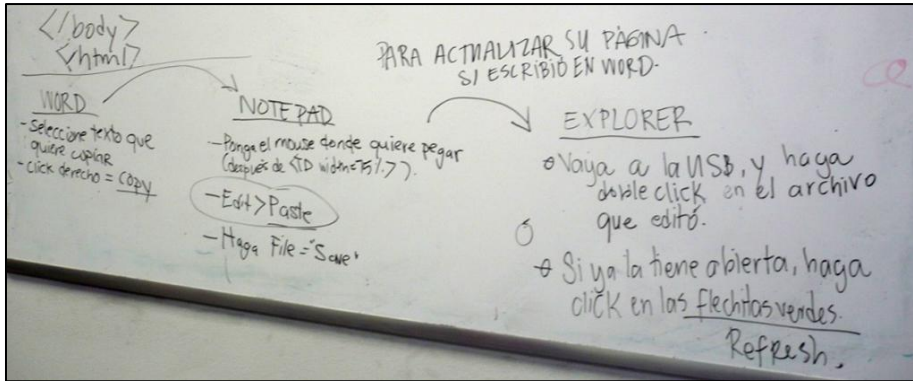 </body>
<html>
PARA ACTUALIZAR SU PÁGINA
SI ESCRIBIÓ EN WORD.
WORD
- Seleccione texto que
quiere copiar
- Click derecho = copy
NOTEPAD
- Ponga el mouse donde quiere pegar
(después de <TD width=75%>).
- Edit > Paste
- Haga File = "Save"
EXPLORER
Vaya a la USB, y haga
doble click en el archivo
que editó.
Si ya la tiene abierta, haga
click en las flechitas verdes.
Refresh.